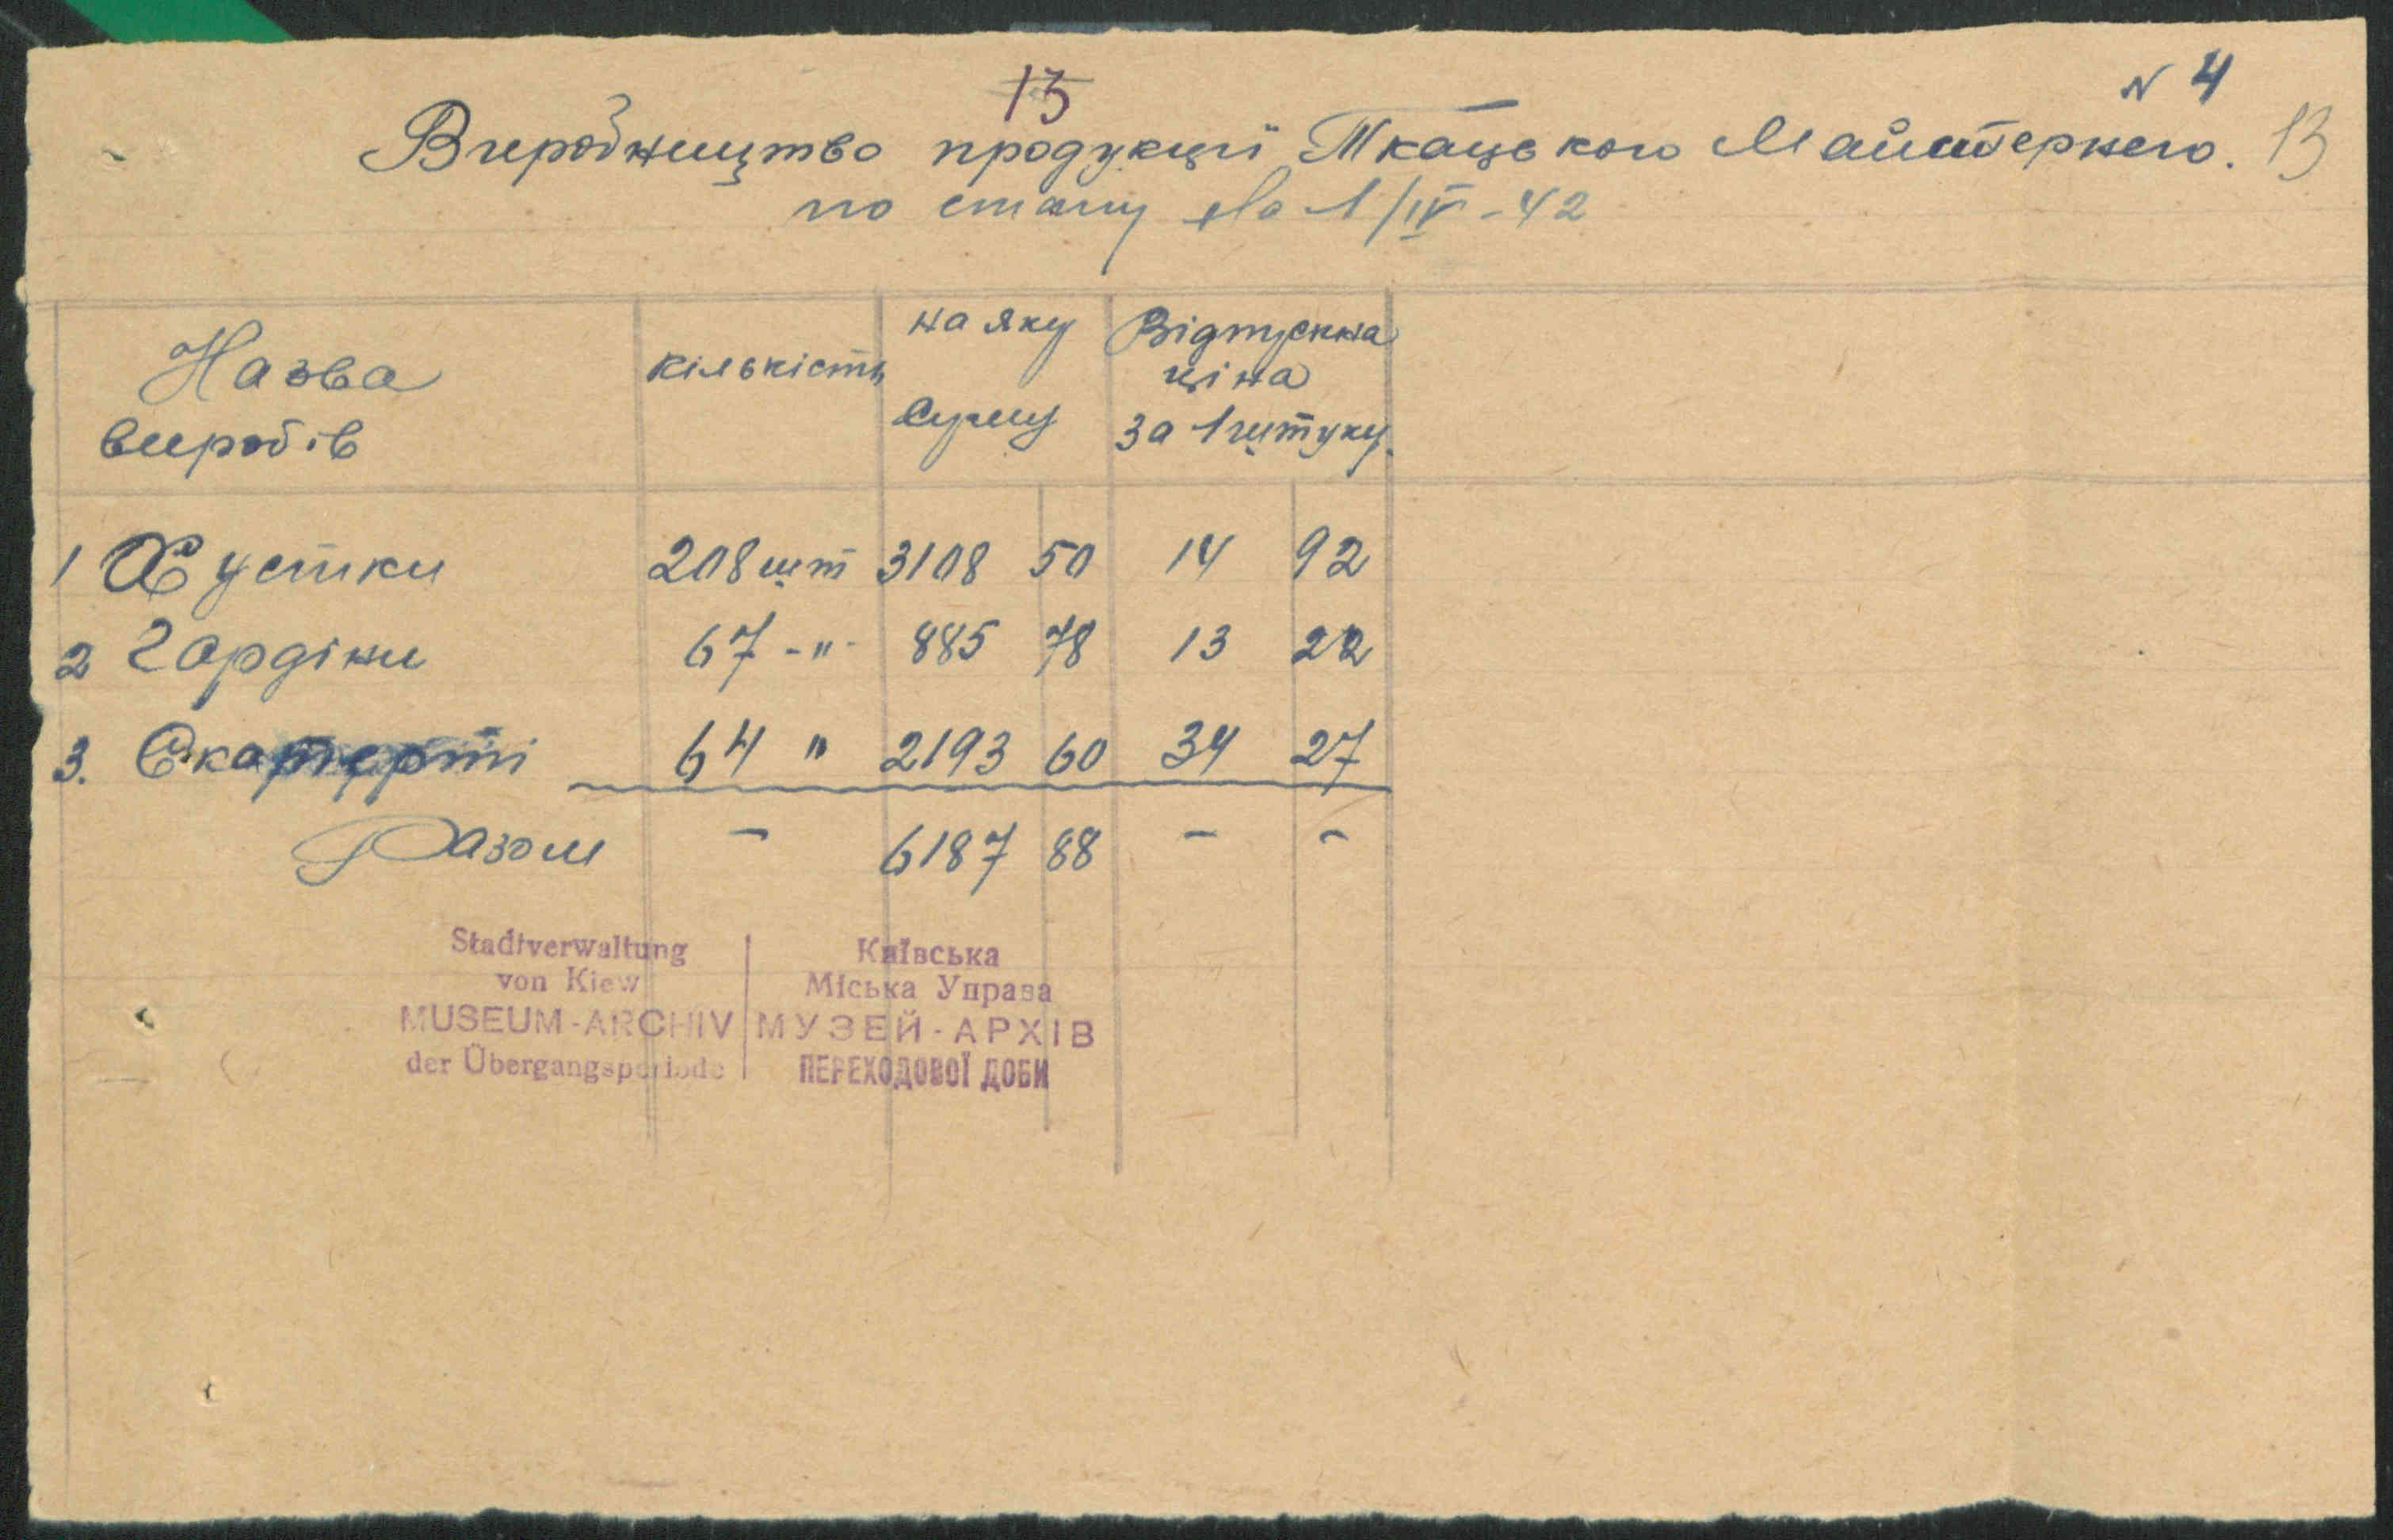 13
N 4
Виробництво продукції Ткацького Майстернею. 13
по стану На 1/IV-42
Назва виробів
кількість
на яку суму
Відпускна ціна за 1 штуку.
1 Хустки 208 шт 3108 50 14 92
2 Гардіни 67 -"- 885 78 13 22
3. Скатерті 64 " 2193 60 34 27
Разом - 6187 88 - -
Stadtverwaltung
von Kiew
MUSEUM-ARCHIV
der Übergangsperiode
Київська
Міська Управа
МУЗЕЙ-АРХІВ
ПЕРЕХОДОВОЇ ДОБИ